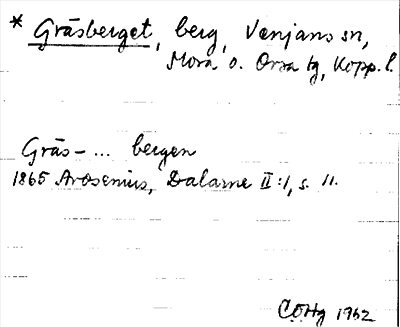 * Gråsberget, berg, Venjans sn,
Mora o. Orsa tg, Kopp. l.
Grås- ... bergen
1865 Arosenius, Dalarne II:1, s. 11.
1962